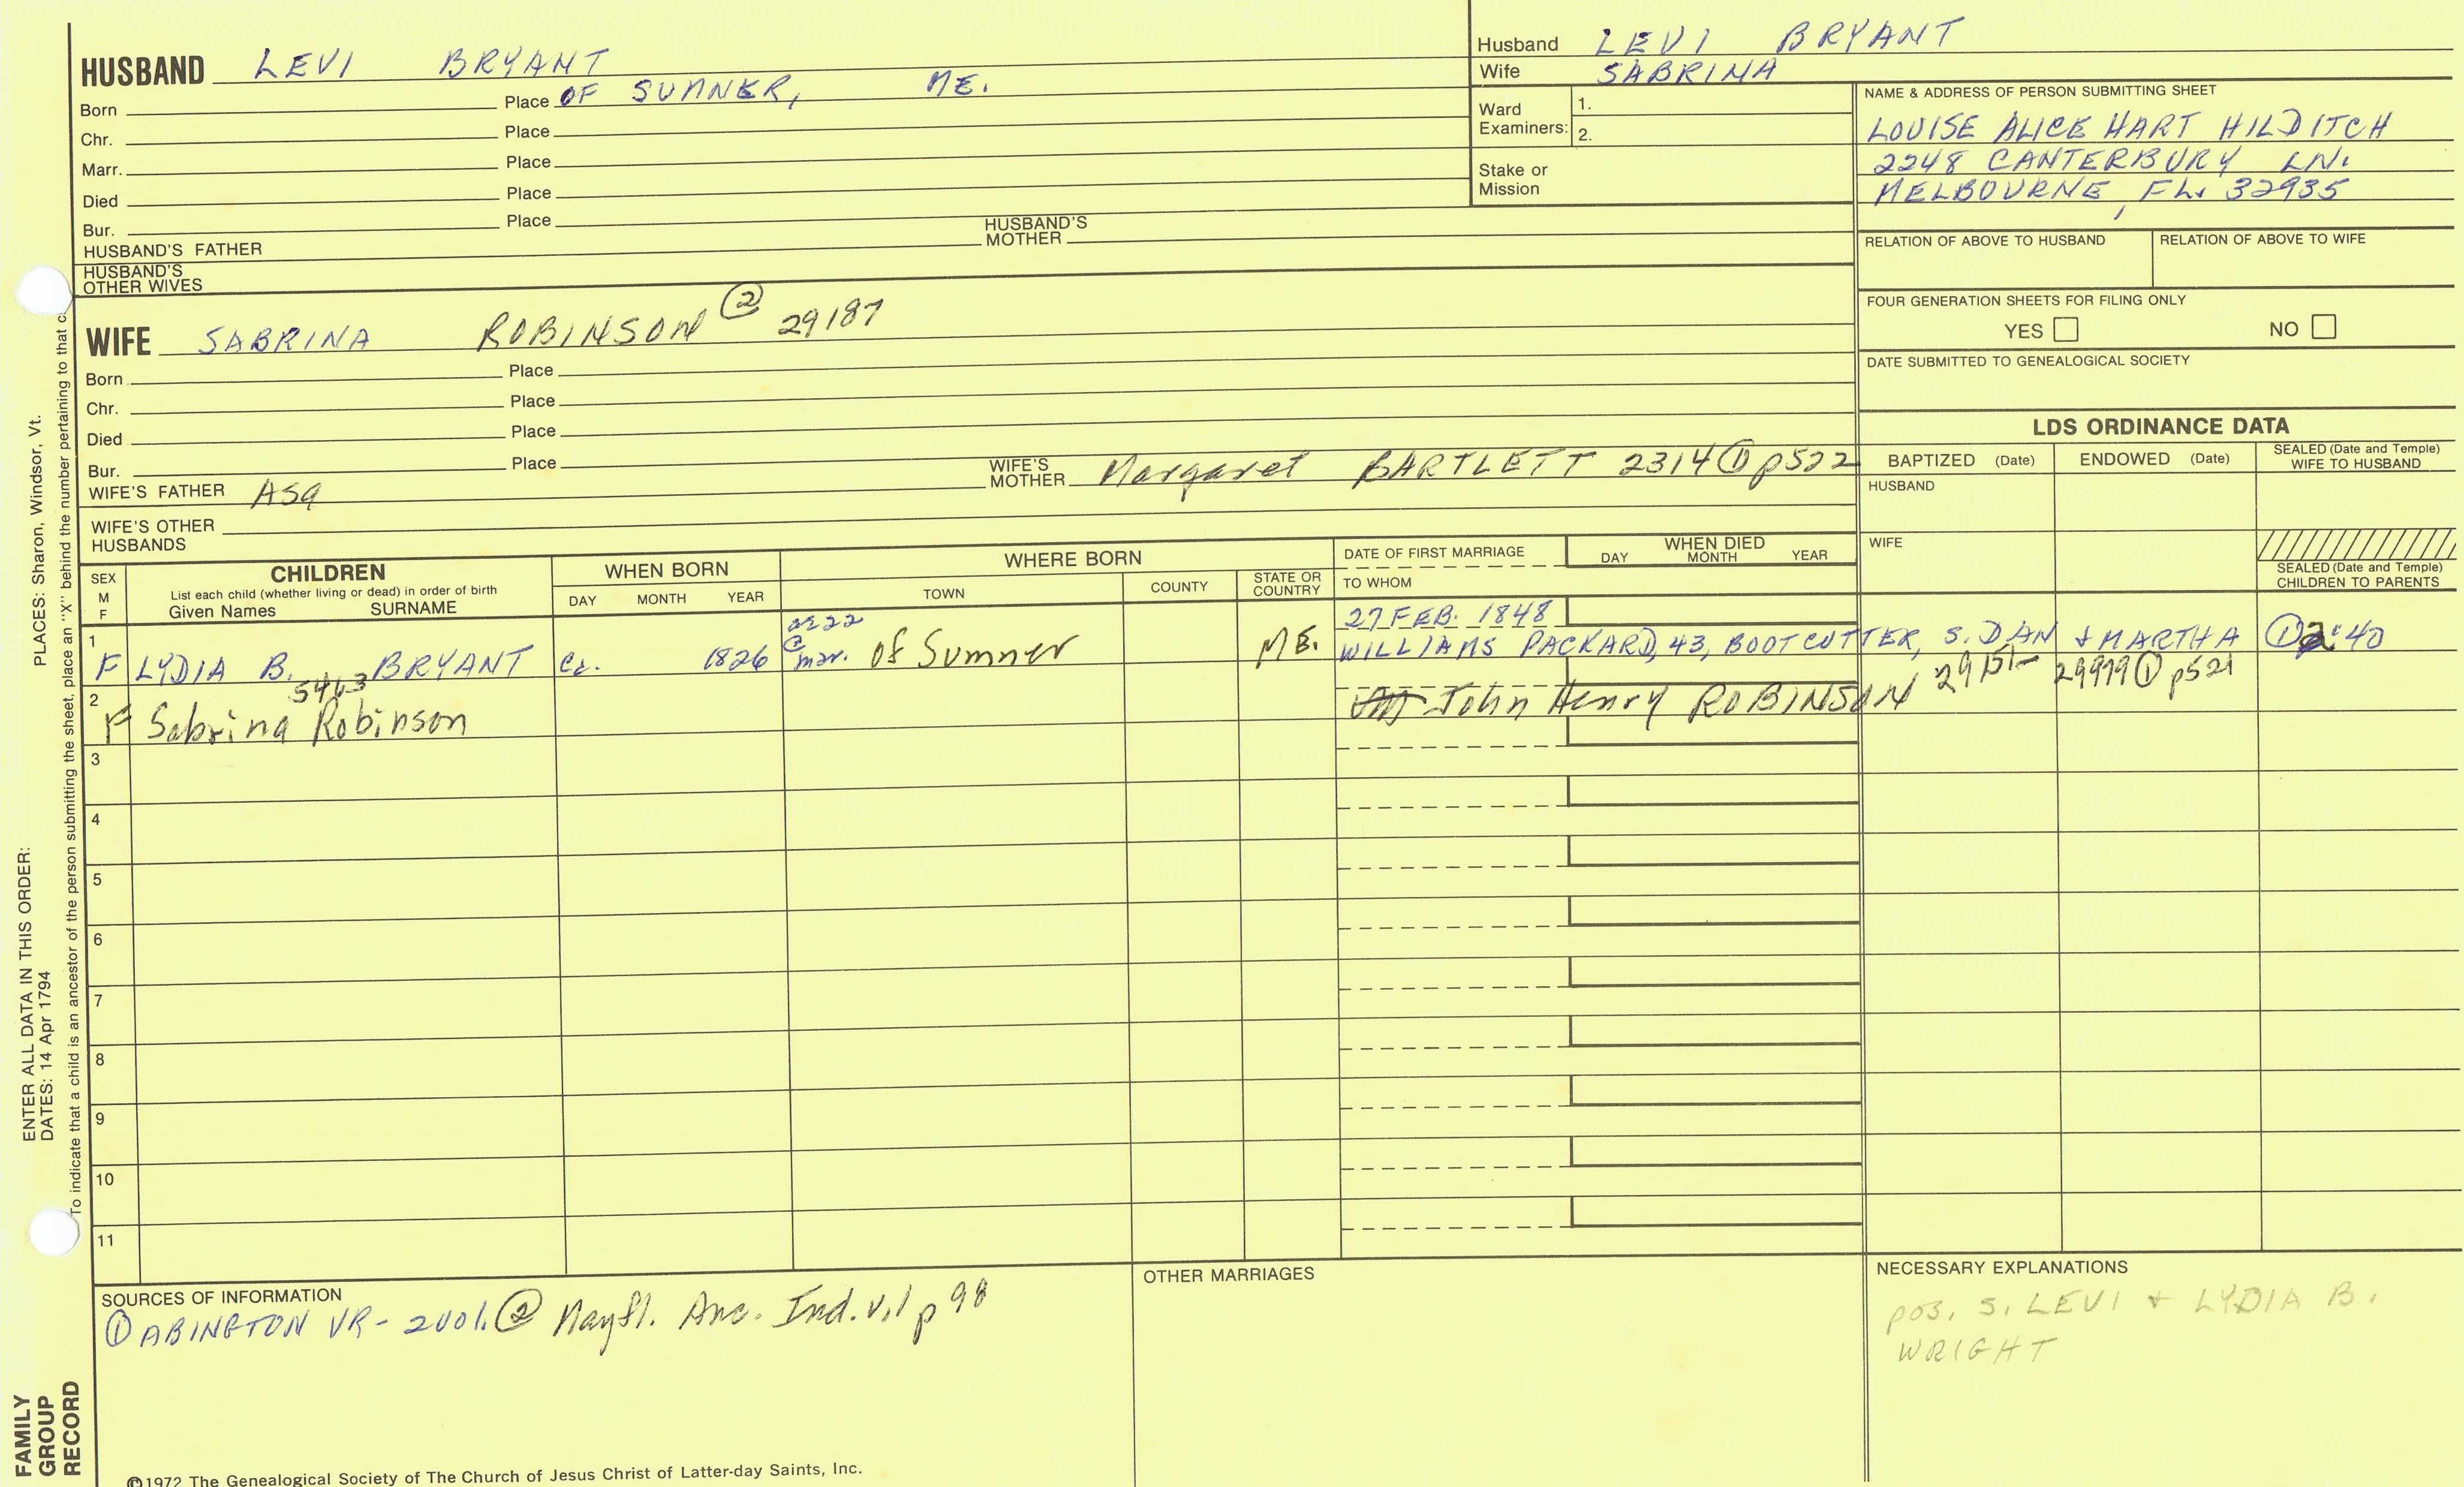 HUSBAND LEVI BRYANT
Born Place OF SUMNER, ME.
Chr. Place
Marr. Place
Died Place
Bur. Place
HUSBAND'S FATHER HUSBAND'S MOTHER
HUSBAND'S OTHER WIVES
Husband LEVI BRYANT
Wife SABRINA
Ward Examiners: 1.
2.
Stake or Mission
NAME & ADDRESS OF PERSON SUBMITTING SHEET
LOUISE ALICE HART HILDITCH
2248 CANTERBURY LN.
MELBOURNE, FL. 32935
RELATION OF ABOVE TO HUSBAND RELATION OF ABOVE TO WIFE
FOUR GENERATION SHEETS FOR FILING ONLY
YES NO
DATE SUBMITTED TO GENEALOGICAL SOCIETY
WIFE SABRINA ROBINSON ② 29187
Born Place
Chr. Place
Died Place
Bur. Place
WIFE'S FATHER Asa WIFE'S MOTHER Margaret BARTLETT 2314 ① p522
WIFE'S OTHER HUSBANDS
LDS ORDINANCE DATA
BAPTIZED (Date) ENDOWED (Date) SEALED (Date and Temple) WIFE TO HUSBAND
HUSBAND
WIFE
SEALED (Date and Temple) CHILDREN TO PARENTS
SEX M F
CHILDREN
List each child (whether living or dead) in order of birth
Given Names SURNAME
WHEN BORN
DAY MONTH YEAR
WHERE BORN
TOWN COUNTY STATE OR COUNTRY
DATE OF FIRST MARRIAGE
TO WHOM
WHEN DIED
DAY MONTH YEAR
1 27 FEB. 1848
F LYDIA B. BRYANT Ca. 1826 mar. of Sumner ME. WILLIAMS PACKARD, 43, BOOTCUTTER, S. DAN & MARTHA ① 2:40
2 5463 John Henry ROBINSON 29979 ① p521
F Sabrina Robinson
3
4
5
6
7
8
9
10
11
SOURCES OF INFORMATION
① ABINGTON VR- 2 Vol. ② Mayfl. Anc. Ind. v.1 p 98
OTHER MARRIAGES
NECESSARY EXPLANATIONS
pos. S. LEVI & LYDIA B.
WRIGHT
©1972 The Genealogical Society of The Church of Jesus Christ of Latter-day Saints, Inc.
FAMILY GROUP RECORD
ENTER ALL DATA IN THIS ORDER:
DATES: 14 Apr 1794
PLACES: Sharon, Windsor, Vt.
To indicate that a child is an ancestor of the person submitting the sheet, place an "X" behind the number pertaining to that c